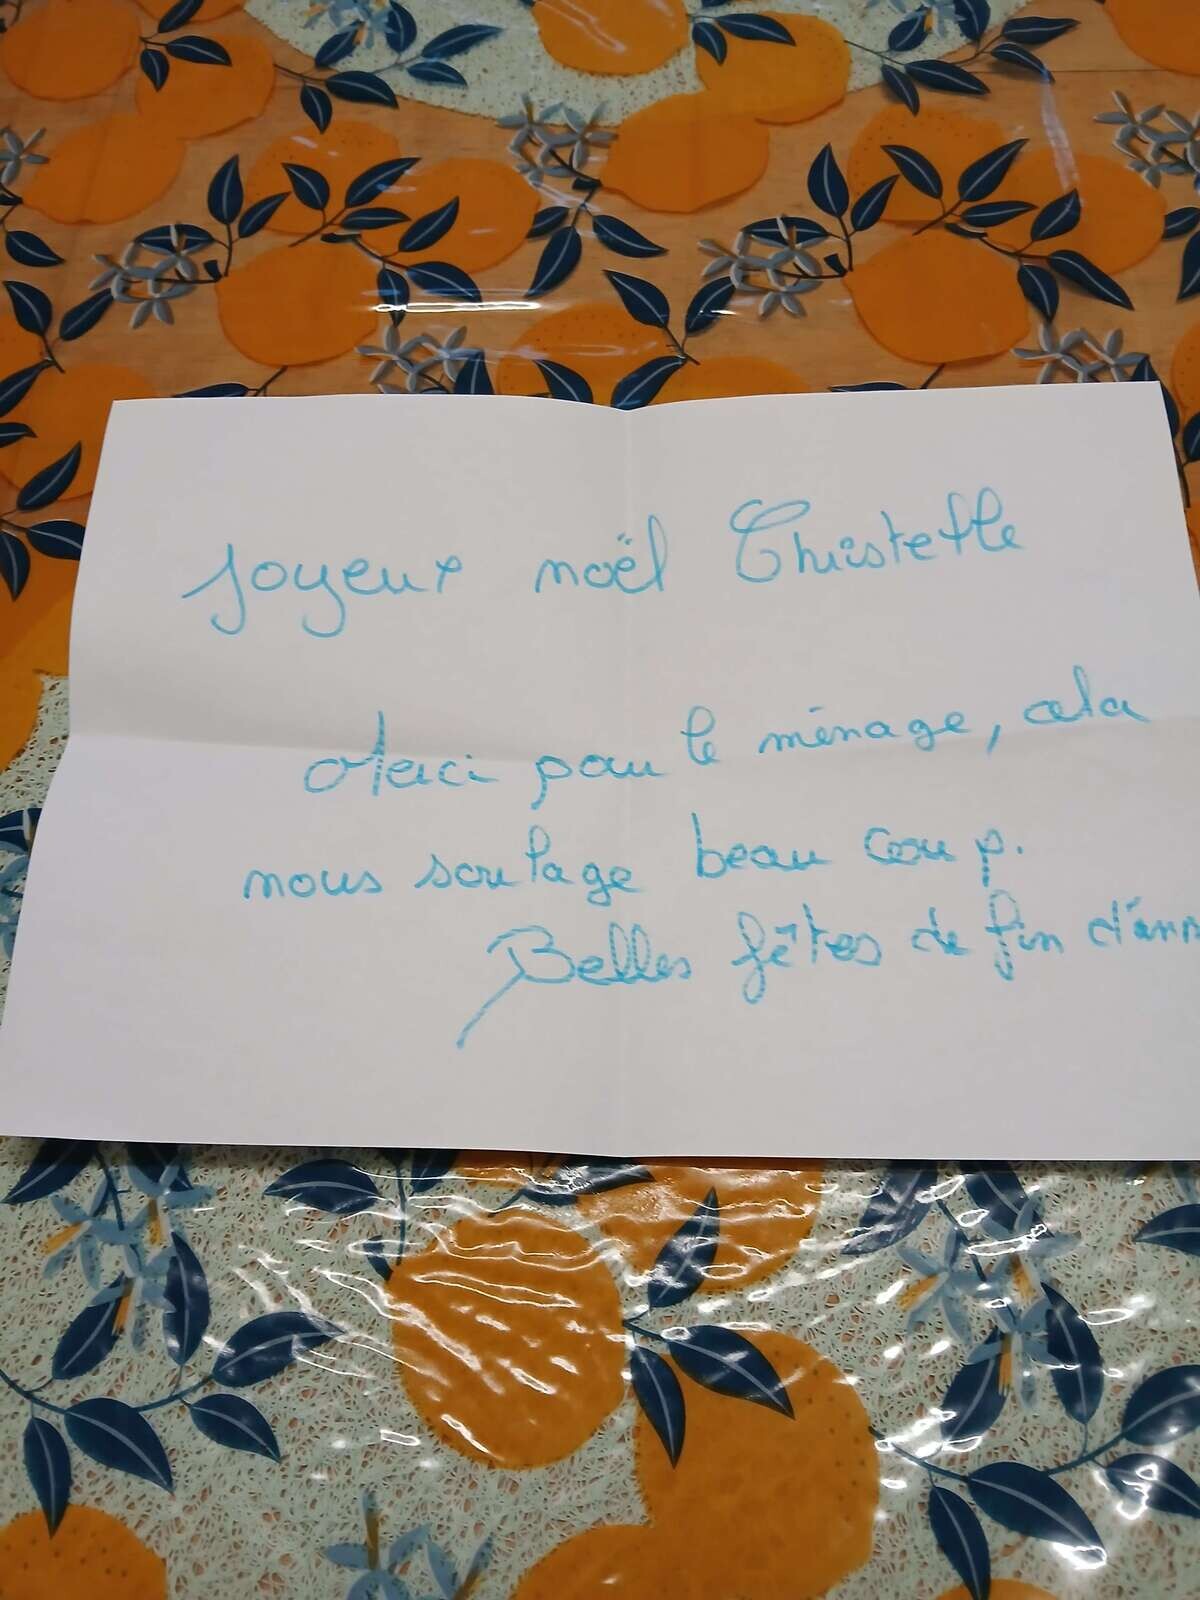 Joyeux noël Christelle
Merci pour le ménage, cela
nous soulage beau coup.
Belles fêtes de fin d'ann